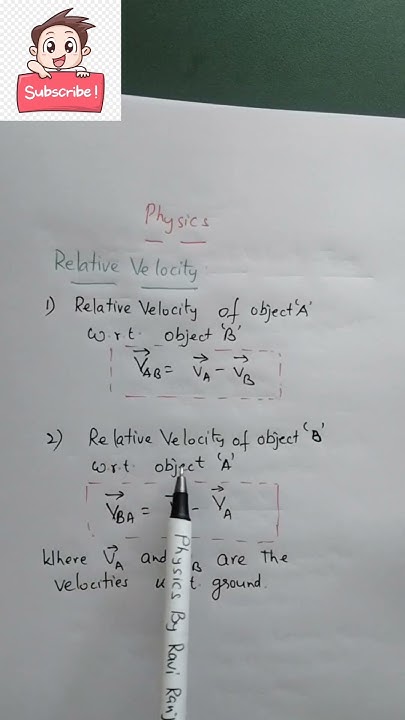 Subscribe!
Physics
Relative Velocity:
1) Relative Velocity of object 'A'
w.r.t. object 'B'
V⃗AB = V⃗A - V⃗B
2) Relative Velocity of object 'B'
w.r.t. object 'A'
V⃗BA = - V⃗A
Where V⃗A and B are the
velocities ground.
Physics By Ravi